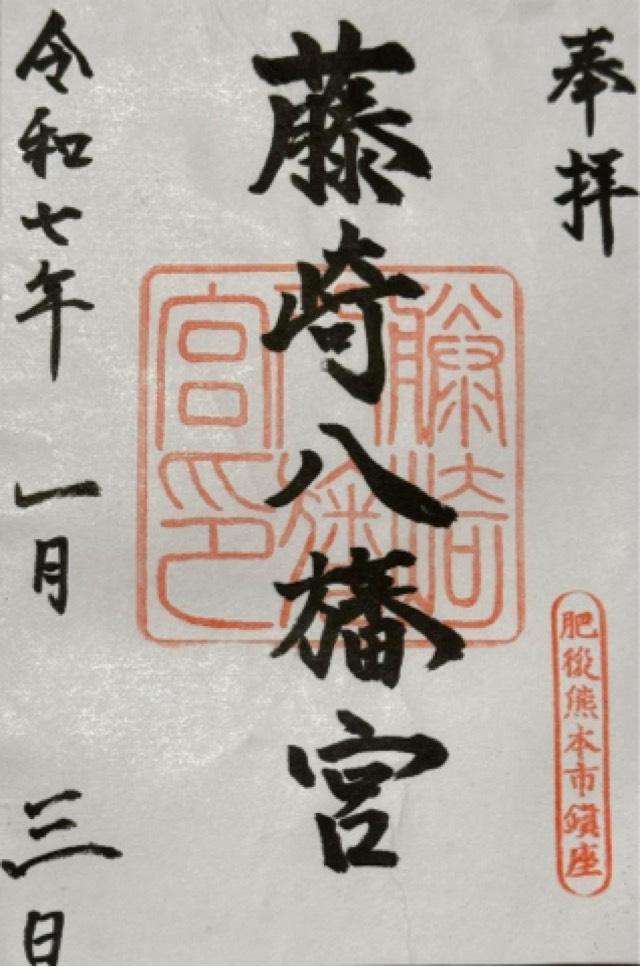 奉拝
肥後熊本市鎮座
藤崎八旛宮
藤崎八旛宮印
令和七年 一月 三日